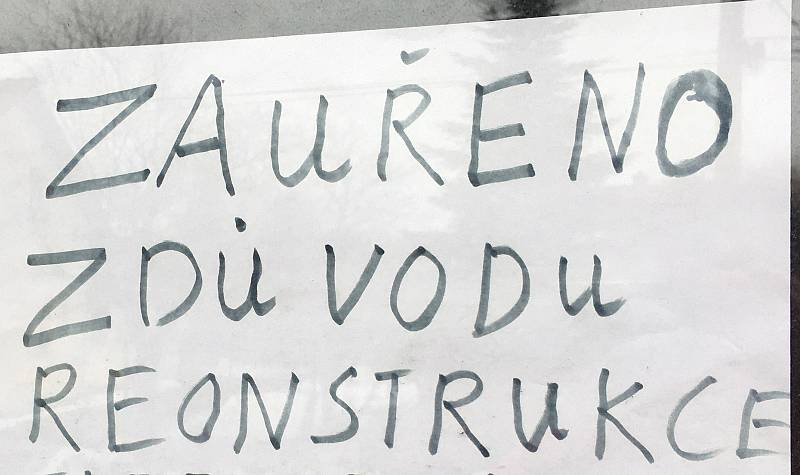 ZAUŘENO
Z DŮVODU
REONSTRUKCE